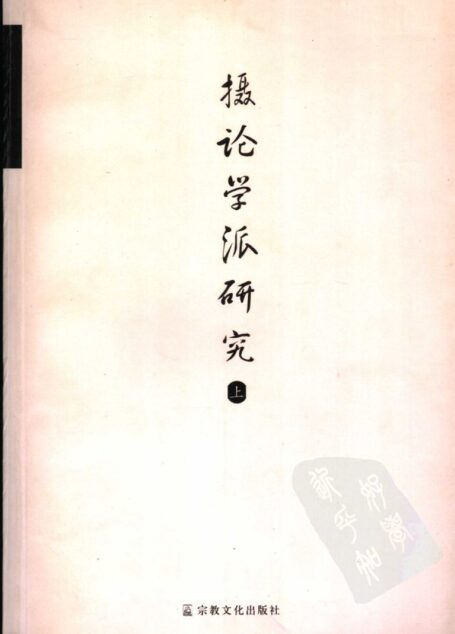 摄论学派研究
上
宗教文化出版社